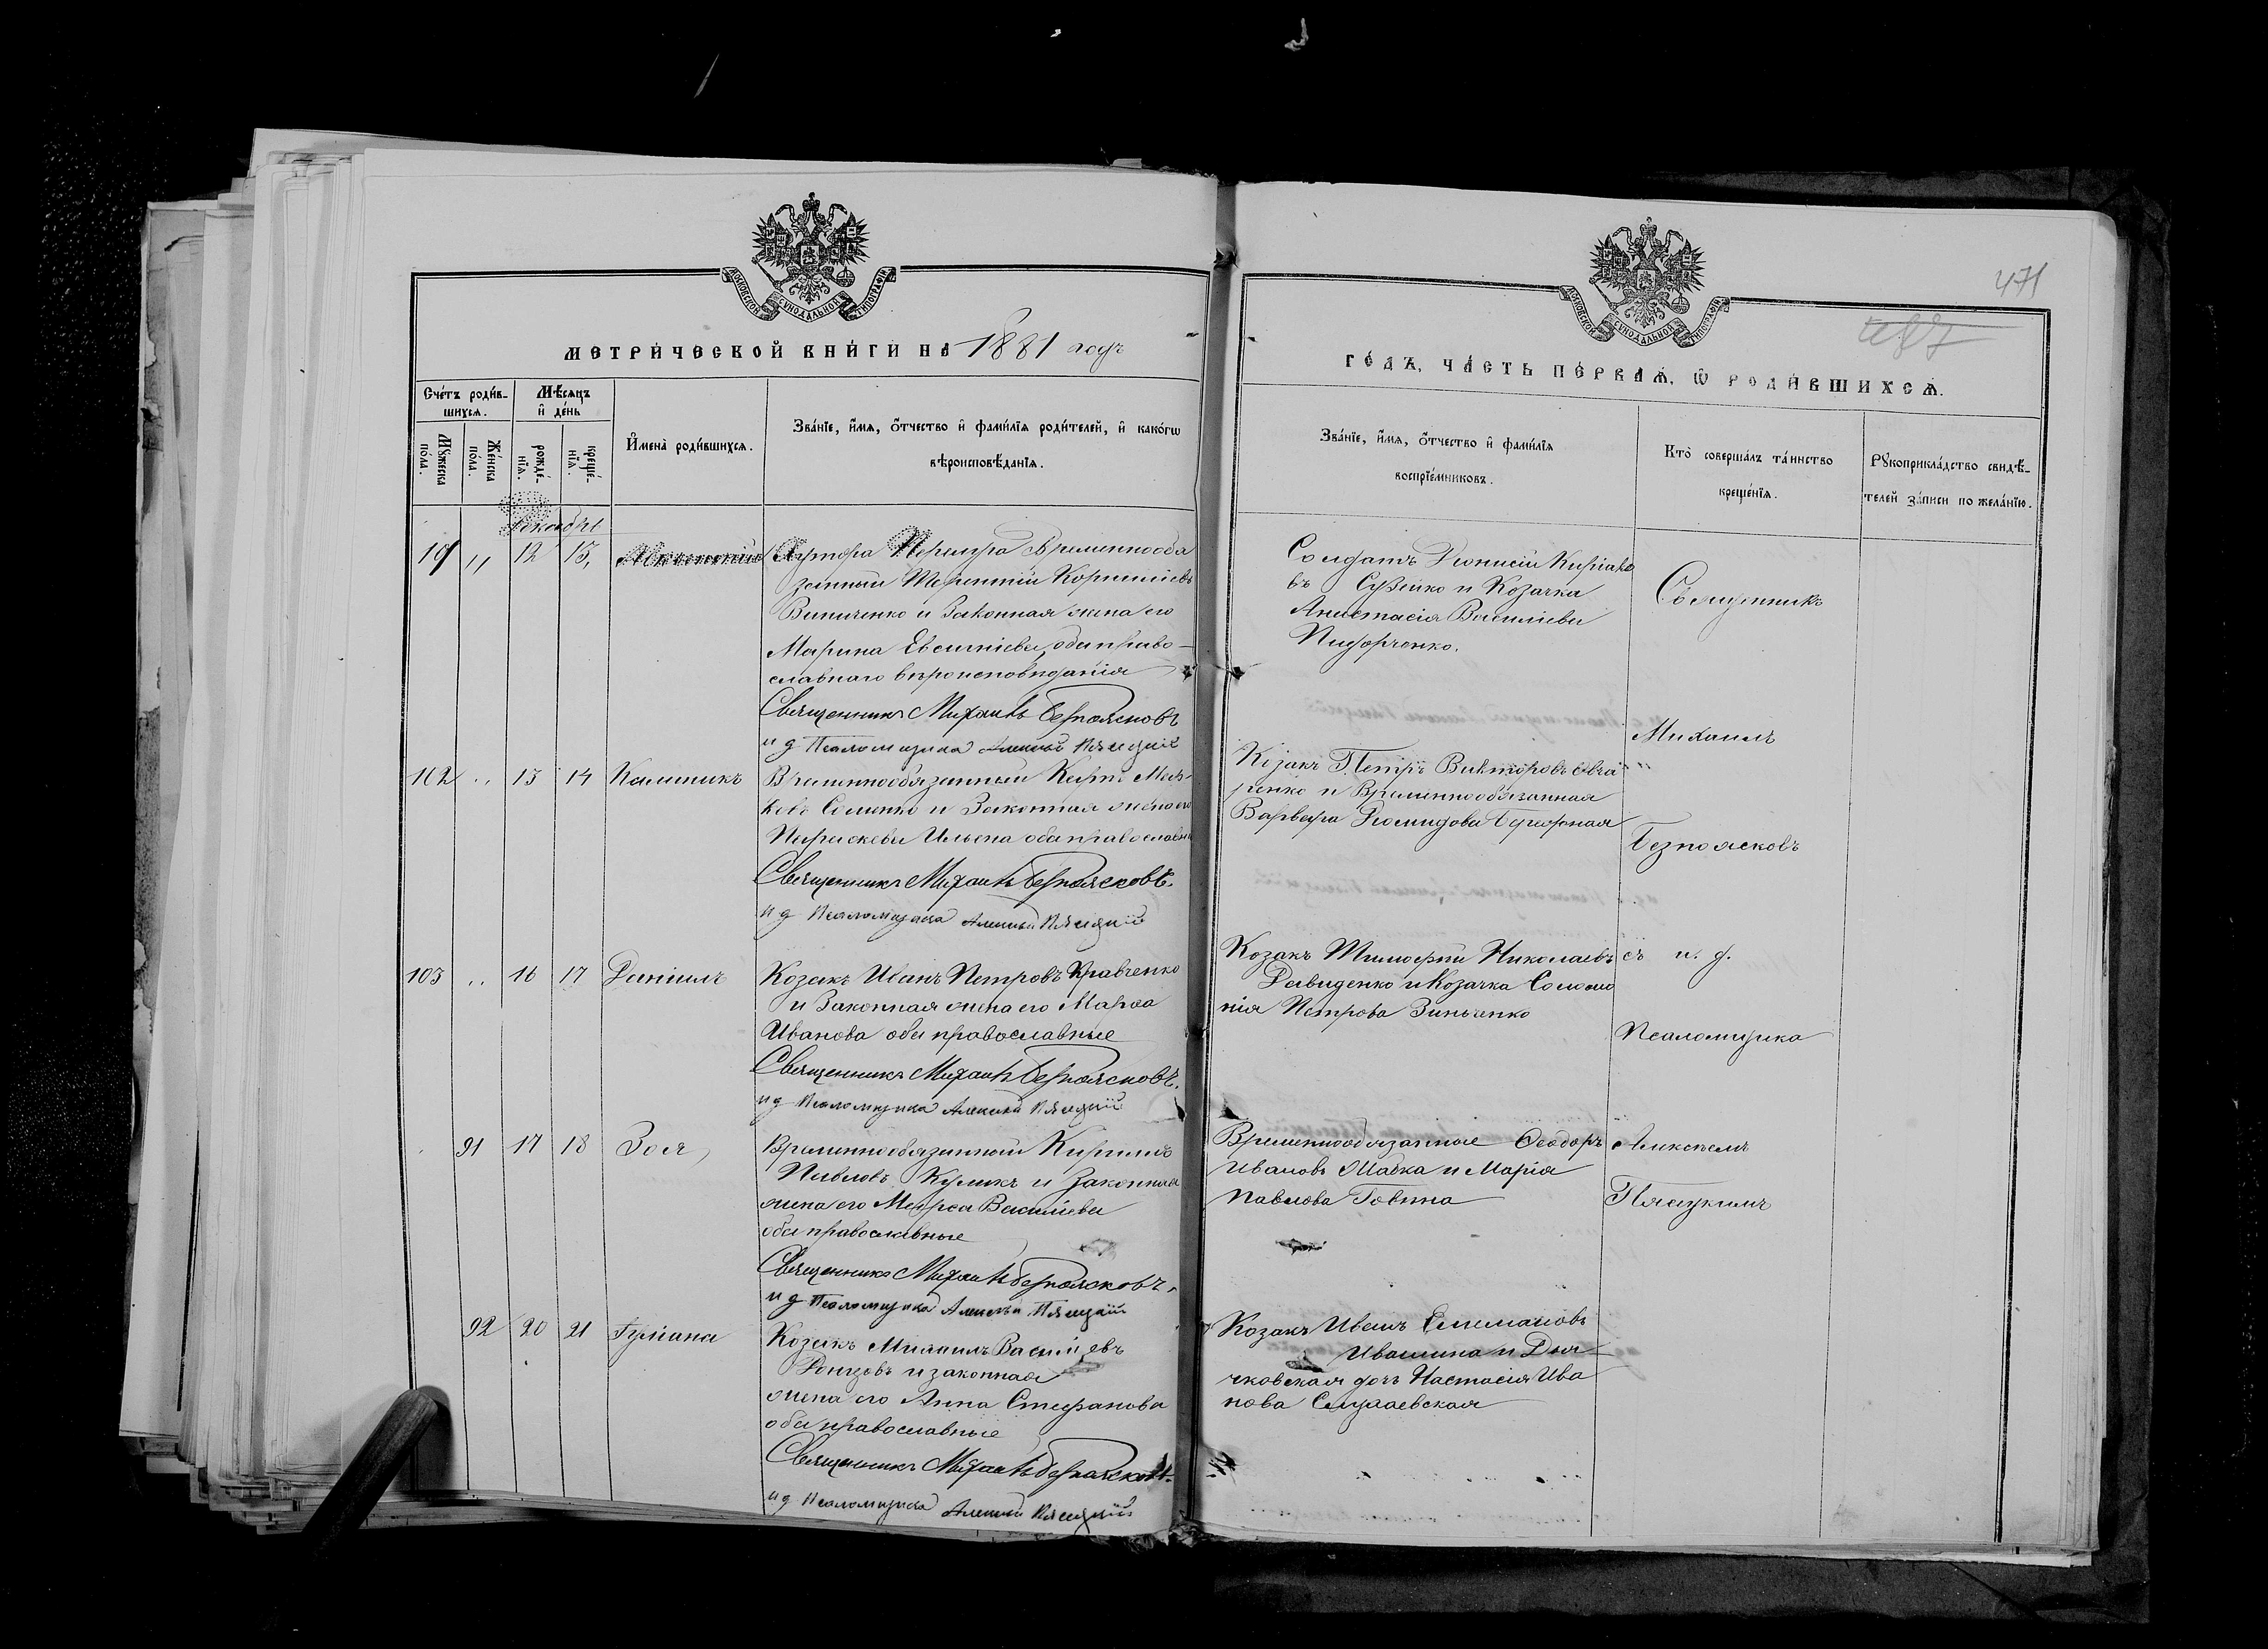 МОСКОВСКОЙ СѴНОДАЛЬНОЙ ТИПОГРАФІИ
МЕТРИЧЕСКОЙ КНИГИ НА 1881 годъ
Счетъ родив-
шихся.
Мѣсяцъ
и день
Мужеска
пола.
Женска
пола.
рожде-
нія.
креще-
нія.
Имена родившихся.
Званіе, имя, отчество и фамилія родителей, и какогѡ
вѣроисповѣданія.
Декабрь
101 " 12 13,
Хутора Перелура Временнообя
занный Терентій Корниліевъ
Виниченко и Законная жена его
Марина Евсигніева, оба право-
славнаго вѣроисповѣданія
Священникъ Михаилъ Безпоясковъ
и д Псаломщика Алексѣй Пясецкій
102 " 13 14 Калиникъ
Временнообязанный Карпъ
Семенко и Законная жена его
Параскева Ильина оба православн
Священникъ Михаилъ Безпоясковъ.
и д Псаломщика Алексѣй Пясецкій
103 " 16 17 Даніилъ
Козакъ Иванъ Петровъ Кравченко
и Законная жена его Марѳа
Иванова оба православные
Священникъ Михаилъ Безпоясковъ.
и д Псаломщика Алексѣй Пясецкій
91 17 18 Зоя
Временнообязанный Кирилъ
Павловъ Куликъ и Законная
жена его Марѳа Василіева
оба православные
Священникъ Михаилъ Безпоясковъ.
и д Псаломщика Алексѣй Пясецкій
92 20 21 Іуліана
Козакъ Михаилъ Василіевъ
Донцовъ и законная
жена его Анна Стефанова
оба православные
Священникъ Михаилъ Безпоясковъ.
и д Псаломщика Алексѣй Пясецкій
471
МОСКОВСКОЙ СѴНОДАЛЬНОЙ ТИПОГРАФІИ
ГОДЪ, ЧАСТЬ ПЕРВАЯ, Ѡ РОДИВШИХСЯ.
Званіе, имя, отчество и фамилія
воспріемниковъ.
Кто совершалъ таинство
крещенія.
Рукоприкладство свидѣ-
телей записи по желанію.
Солдатъ Діонисій Киріако
въ и Козачка
Анастасія Василіева
Пидорченко.
Священникъ
Михаилъ
Козакъ Петръ Викторовъ Овча
ренко и Временнообязанная
Варвара Діомидова
Безпоясковъ
Козакъ Тимоѳей Николаевъ
Давиденко и Козачка Соломо
нія Петрова Зинченко
съ и. д.
Псаломщика
Временнообязанные Ѳеодоръ
Ивановъ Мавка и Марія
Павлова Говина
Алексѣемъ
Пясецкимъ
Козакъ Иванъ
Ивашина и Дья
чковская дочь Настасія Ива
нова